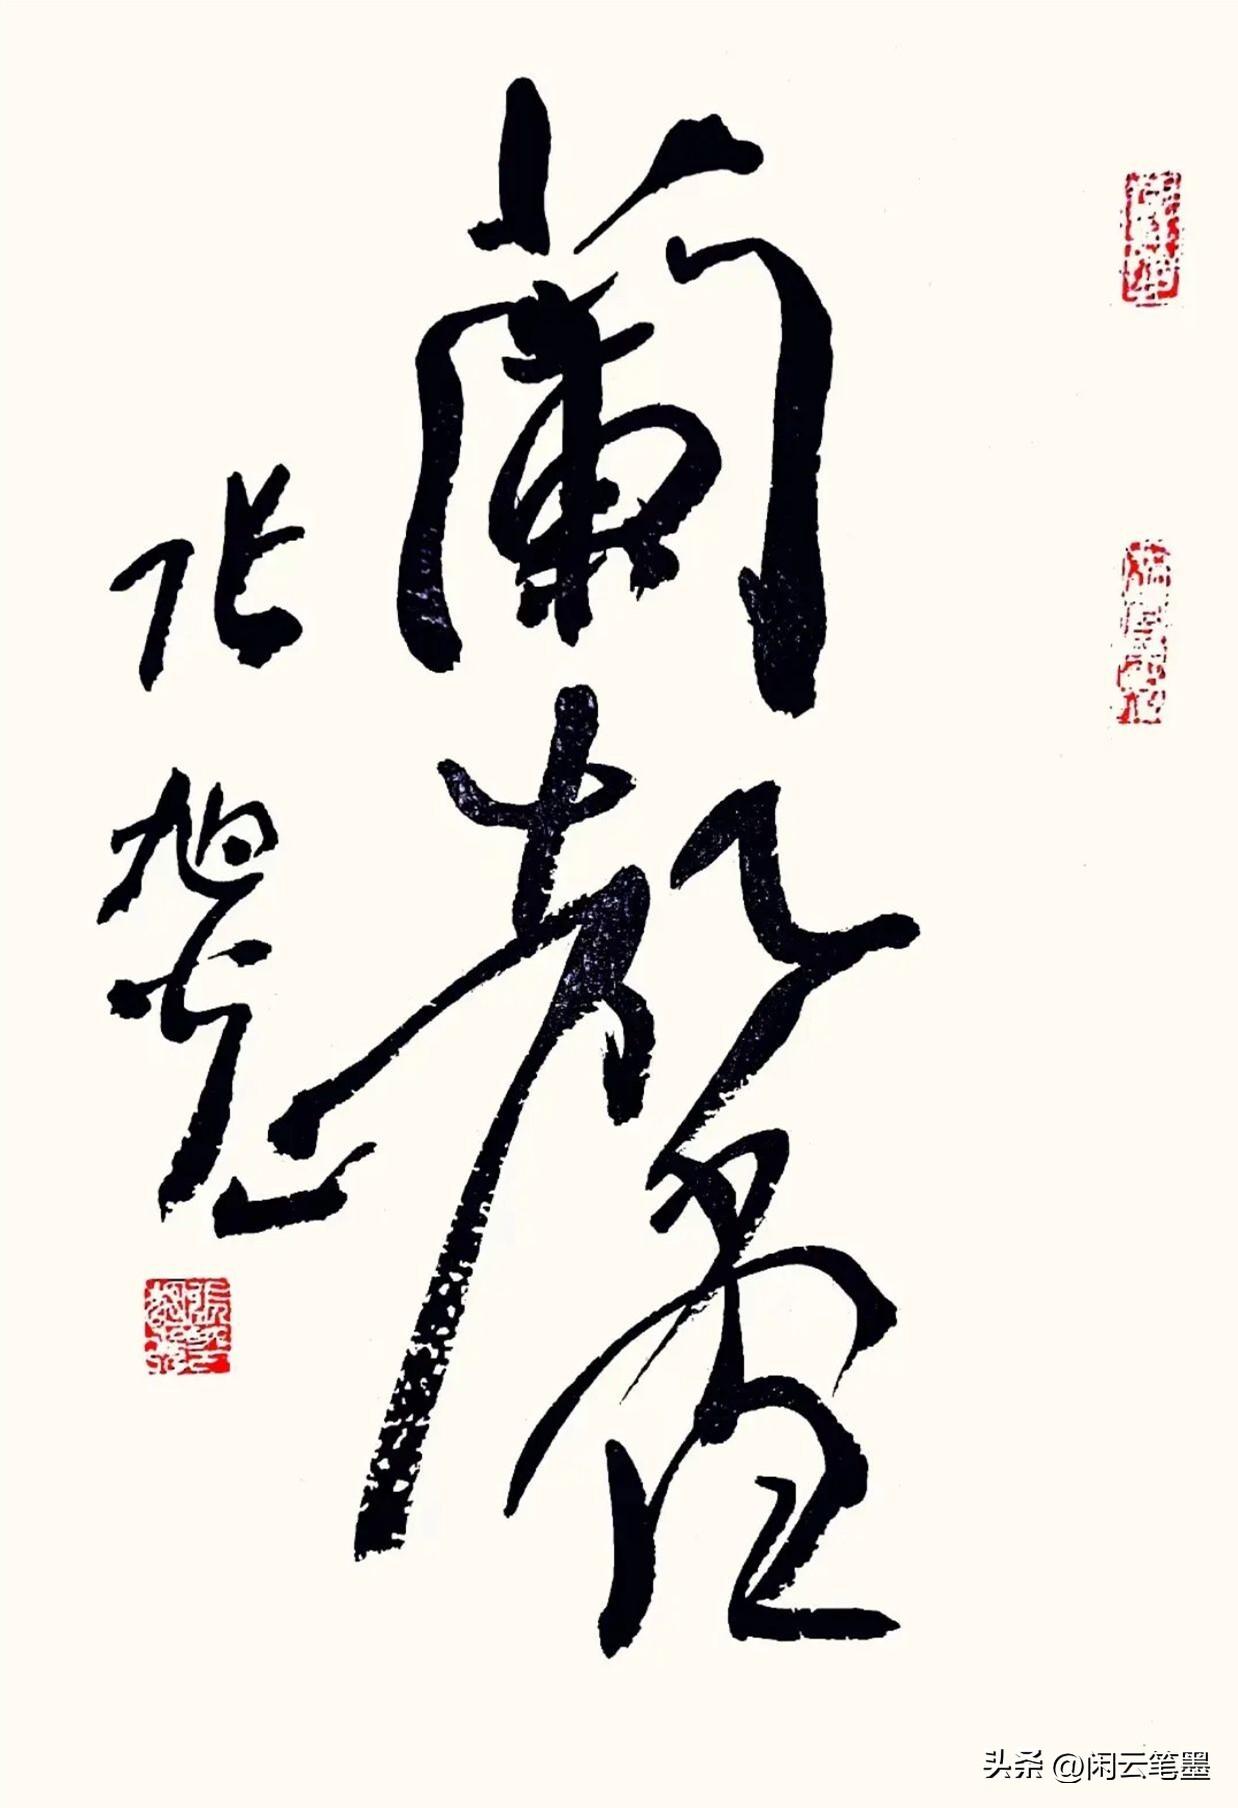 蘭馨
张旭光
头条 @闲云笔墨